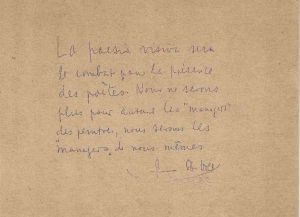 La poesia visiva sera
le combat pour la présence
des poètes. Nous ne serons
plus pour autant les "managers"
des peintres, nous serons les
"managers" de nous-mêmes